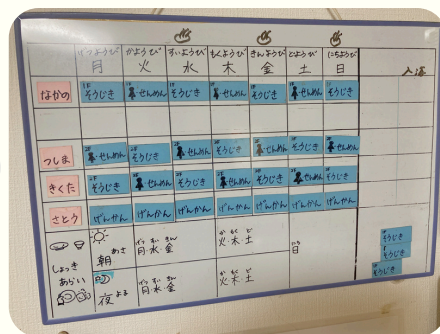 げつようび かようび すいようび もくようび きんようび どようび にちようび
月 火 水 木 金 土 日 入浴
なかの 1F そうじき せんめん そうじき せんめん そうじき せんめん そうじき
つしま せんめん そうじき せんめん そうじき せんめん そうじき せんめん
きくた そうじき せんめん そうじき せんめん そうじき せんめん そうじき
さとう げんかん げんかん げんかん げんかん げんかん げんかん げんかん
しょっき
あらい
朝 あさ 月・水・金 火・木・土 日
夜 よる 月・水・金 火・木・土
そうじき
そうじき
そうじき